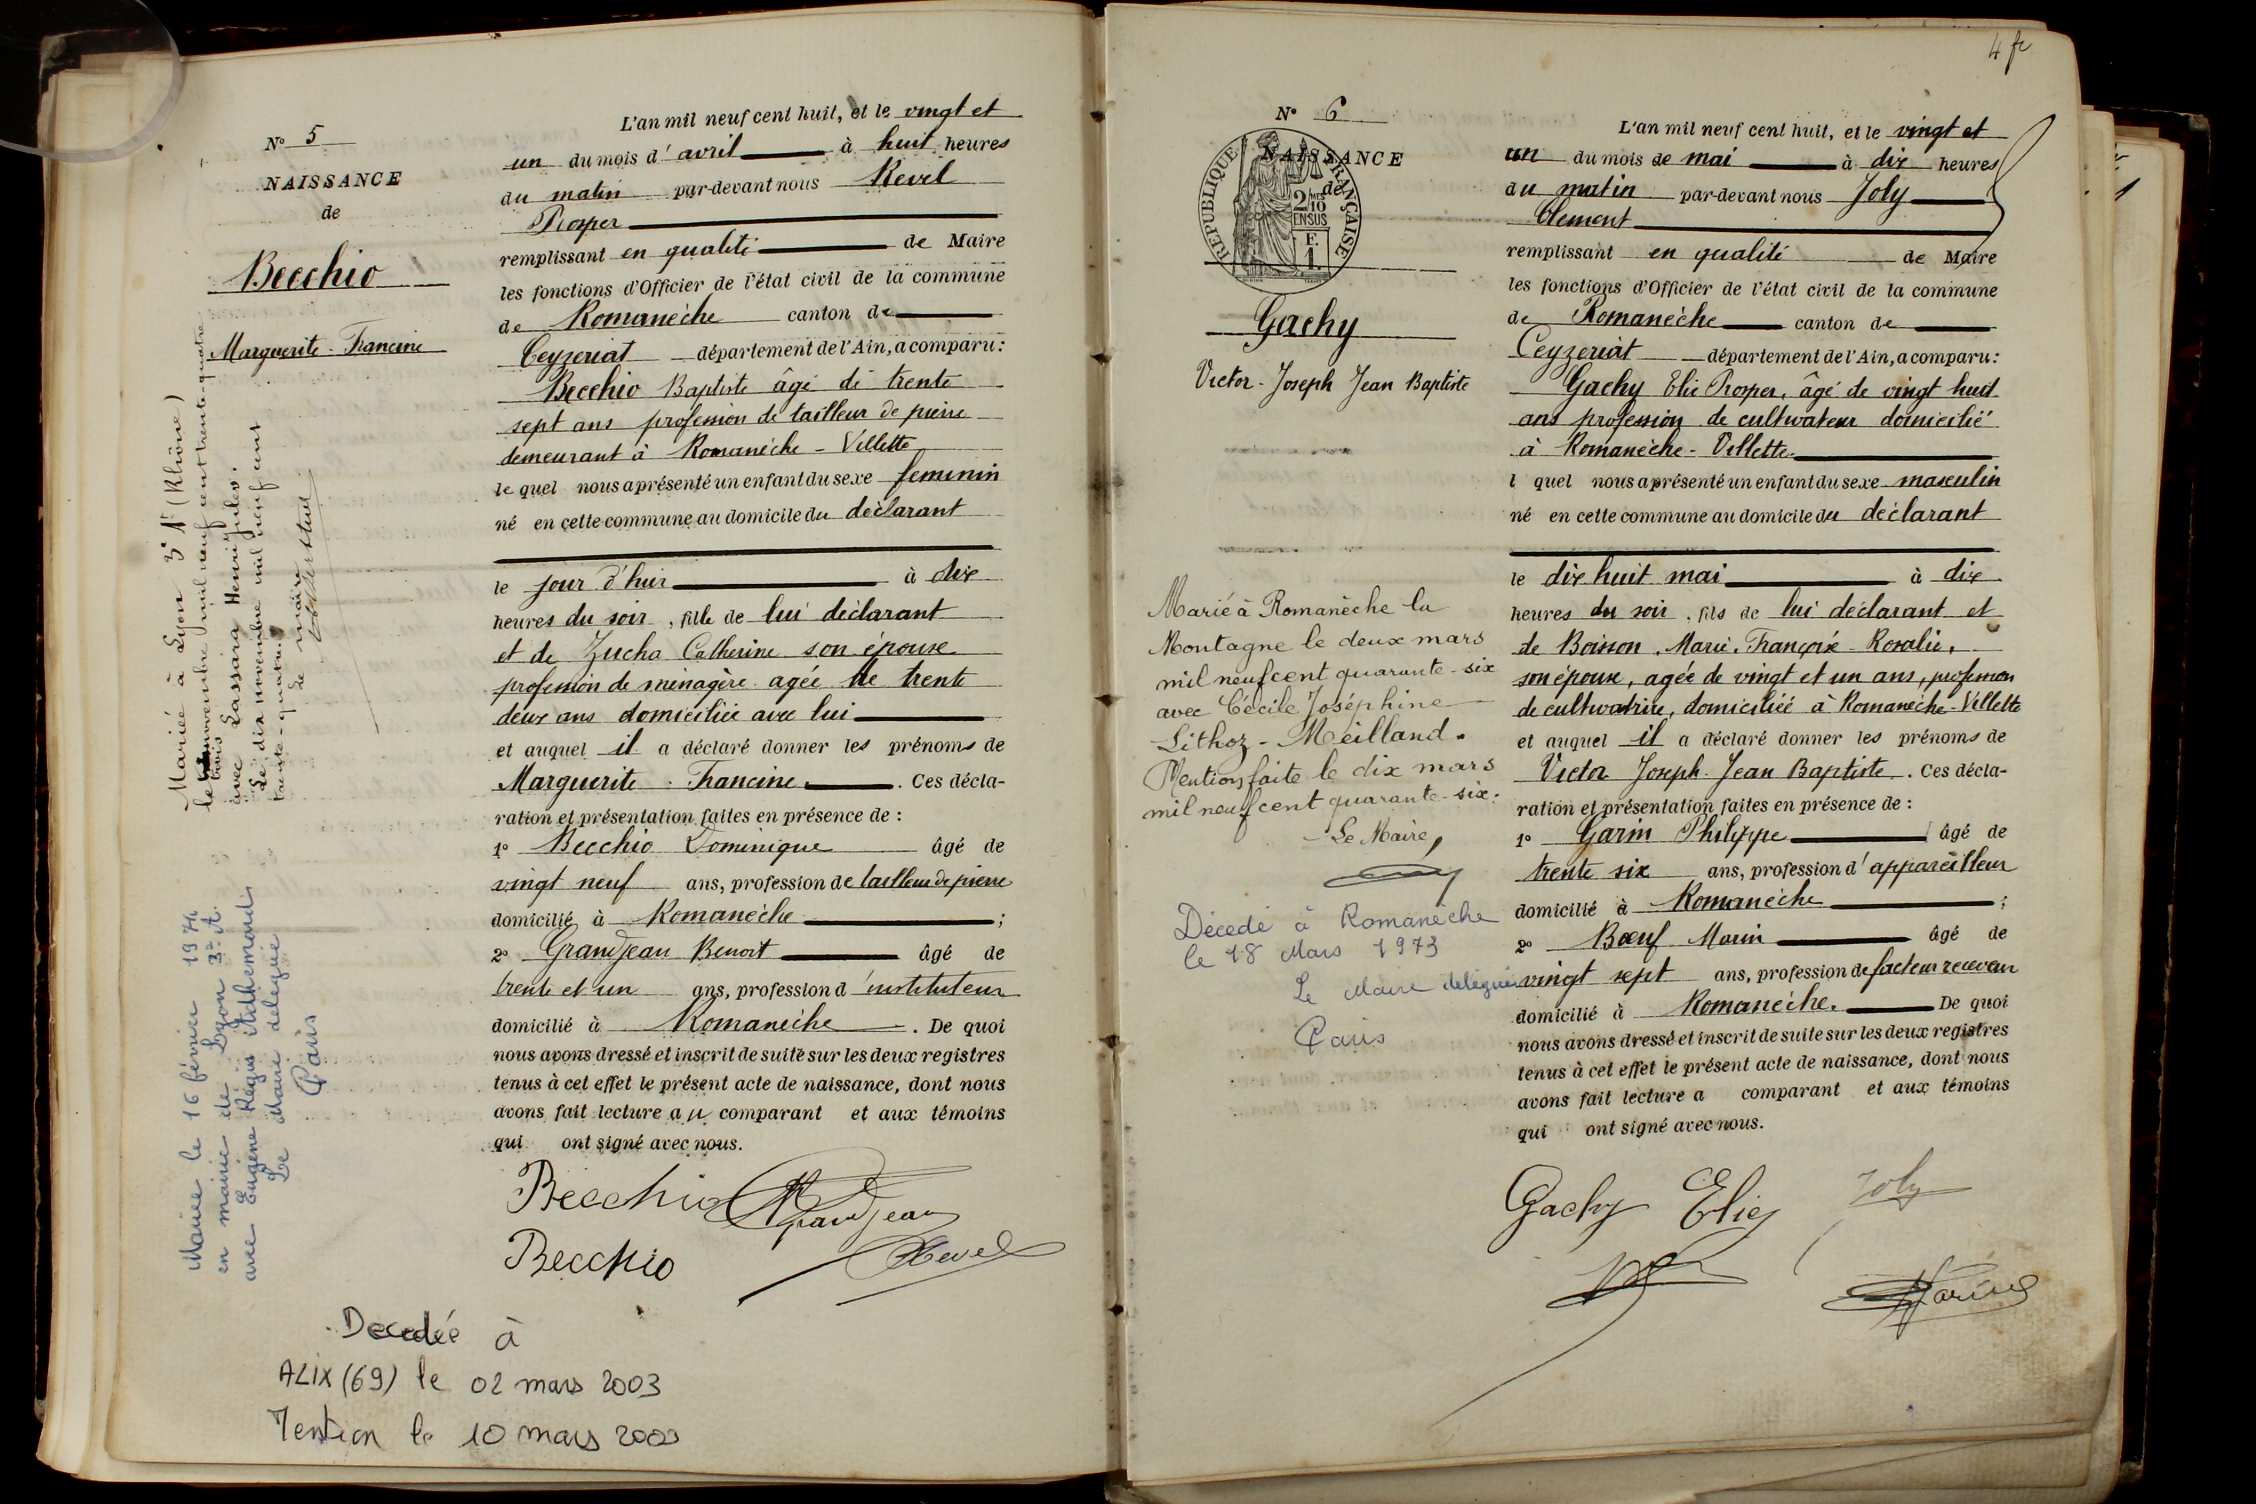 N° 5
NAISSANCE
de
Becchio
Marguerite - Francine
Mariée à Lyon 3e Ar (Rhône)
le novembre mil neuf cent trente-quatre
trois
avec Lassara Henri Jules.
Le dix novembre mil neuf cent
trente-quatre
Le maire
Mariée le 16 février 1974
en mairie de Lyon 3e A.
avec Eugène Régis Anthemard
Le Maire délégué
Pâris
L'an mil neuf cent huit, et le vingt et
un du mois d'avril à huit heures
du matin par-devant nous Revel
Prosper
remplissant en qualité de Maire
les fonctions d'Officier de l'état civil de la commune
de Romanèche canton de
Ceyzeriat département de l'Ain, a comparu :
Becchio Baptiste âgé de trente
sept ans profession de tailleur de pierre
demeurant à Romanèche - Villette
lequel nous a présenté un enfant du sexe feminin
né en cette commune au domicile du déclarant
le jour d'hier à dix
heures du soir, fille de lui déclarant
et de Zucha Catherine son épouse
profession de menagère agée de trente
deux ans domiciliée avec lui
et auquel il a déclaré donner les prénoms de
Marguerite - Francine. Ces décla-
ration et présentation faites en présence de :
1° Becchio Dominique âgé de
vingt neuf ans, profession de tailleur de pierre
domicilié à Romanèche ;
2° Grandjean Benoit âgé de
trente et un ans, profession d'instituteur
domicilié à Romanèche. De quoi
nous avons dressé et inscrit de suite sur les deux registres
tenus à cet effet le présent acte de naissance, dont nous
avons fait lecture au comparant et aux témoins
qui ont signé avec nous.
Becchio Grandjean
Becchio Revel
Decedée à
ALIX (69) le 02 mars 2003
Mention le 10 mars 2003
4 fr
N° 6
NAISSANCE
de
REPUBLIQUE FRANÇAISE
2/10MES
EN SUS
F.
1.
Gachy
Victor - Joseph Jean Baptiste
Marié à Romanèche la
Montagne le deux mars
mil neuf cent quarante-six
avec Cécile Joséphine
Lithoz - Meilland.
Mention faite le dix mars
mil neuf cent quarante-six.
Le Maire,
Décédé à Romanèche
le 18 Mars 1973
Le Maire délégué
Pâris
L'an mil neuf cent huit, et le vingt et
un du mois de mai à dix heures
du matin par-devant nous Joly
Clement
remplissant en qualité de Maire
les fonctions d'Officier de l'état civil de la commune
de Romanèche canton de
Ceyzeriat département de l'Ain, a comparu :
Gachy Elie Prosper, âgé de vingt huit
ans profession de cultivateur domicilié
à Romanèche - Villette.
l quel nous a présenté un enfant du sexe masculin
né en cette commune au domicile du déclarant
le dix huit mai à dix
heures du soir, fils de lui déclarant et
de Boisson, Marie, Françoise - Rosalie,
son épouse, agée de vingt et un ans, profession
de cultivatrice, domiciliée à Romanèche - Villette
et auquel il a déclaré donner les prénoms de
Victor Joseph - Jean Baptiste. Ces décla-
ration et présentation faites en présence de :
1° Garin Philippe âgé de
trente six ans, profession d'appareilleur
domicilié à Romanèche ;
2° Bœuf Marin âgé de
vingt sept ans, profession de facteur receveur
domicilié à Romanèche. De quoi
nous avons dressé et inscrit de suite sur les deux registres
tenus à cet effet le présent acte de naissance, dont nous
avons fait lecture a comparant et aux témoins
qui ont signé avec nous.
Gachy Elie Joly